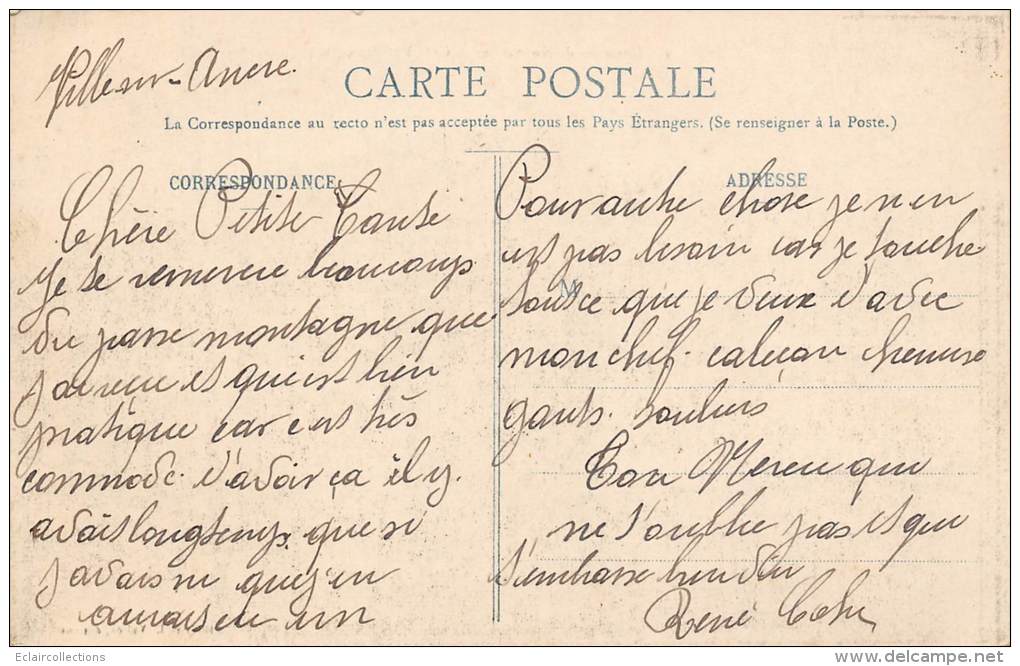 Ville sur-Ancre.
CARTE POSTALE
La Correspondance au recto n'est pas acceptée par tous les Pays Étrangers. (Se renseigner à la Poste.)
CORRESPONDANCE
Chère Petite Tante
Je te remercie beaucoup
du passe montagne que
j'ai reçu et qui est bien
pratique car c'est très
commode d'avoir ça il y
avait longtemps que si
j'avais su que j'en
aurais eu un
ADRESSE
M
Pour autre chose je n'en
est pas besoin car je touche
tout ce que je veux d'avec
mon chef. caleçon chemise
gants. souliers
Ton Neveu qui
ne t'oublie pas et qui
t'embrasse bien
René
Eclaircollections
www.delcampe.net